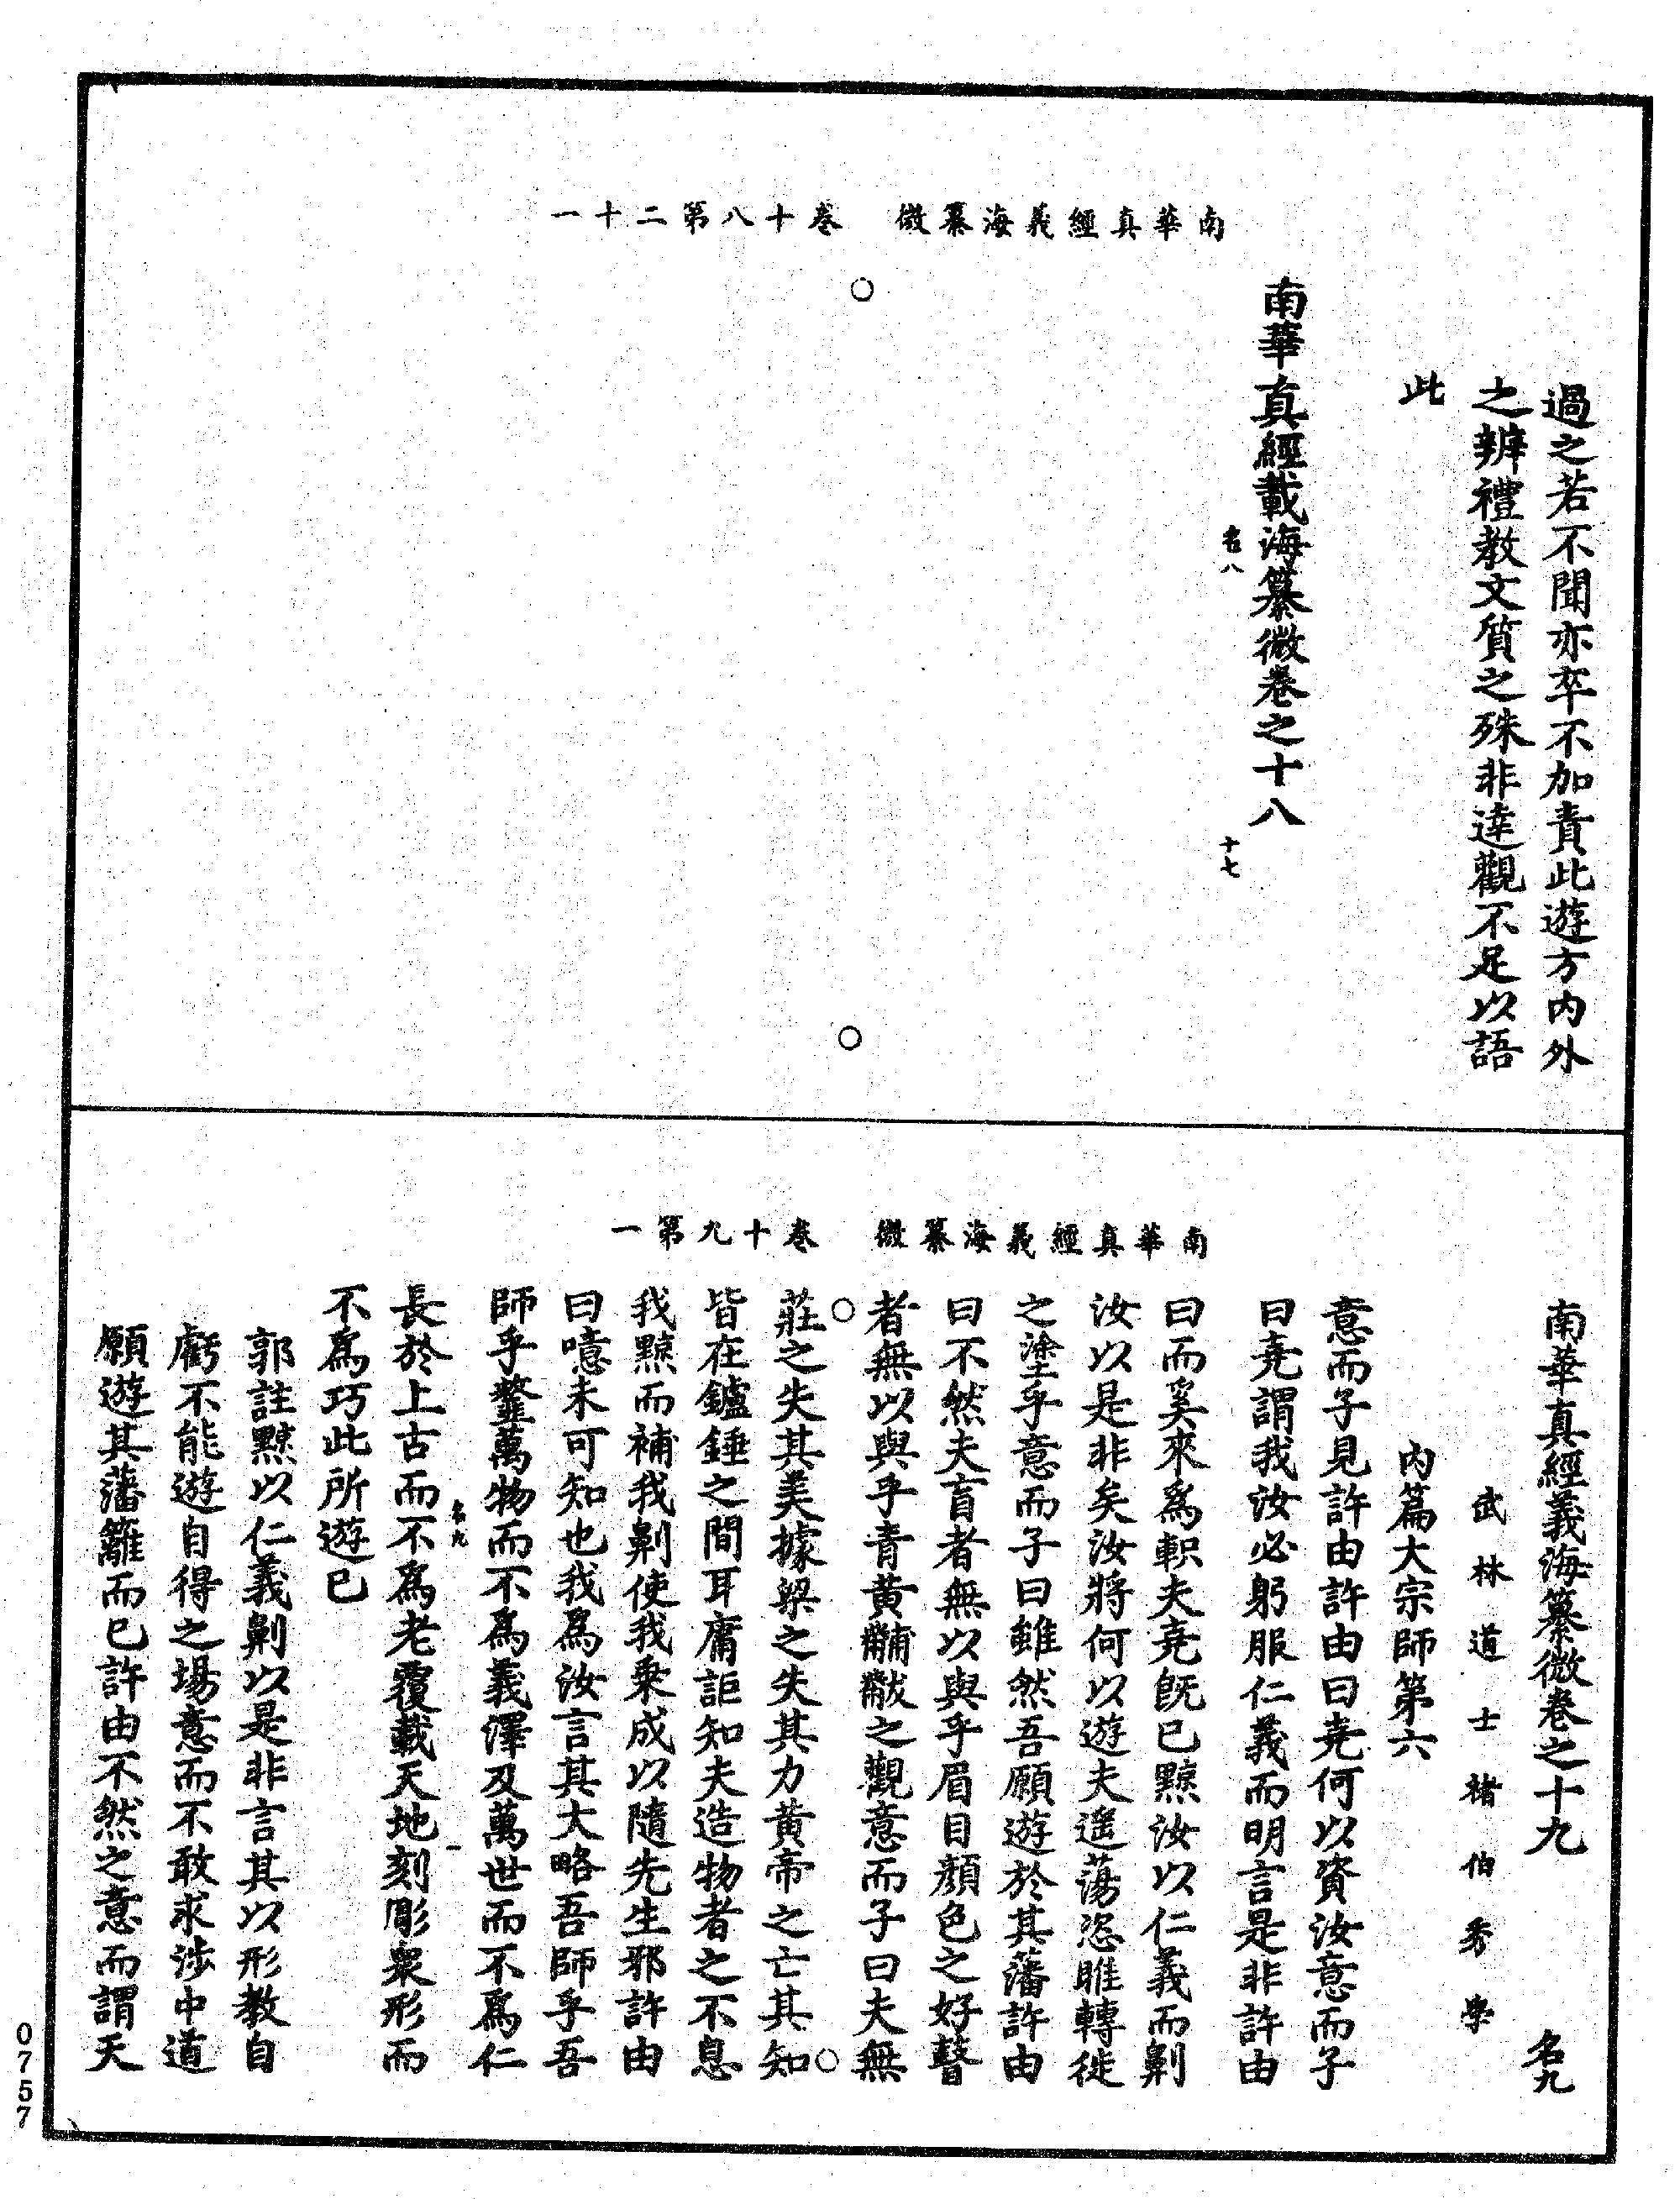 南華真經義海纂微　卷十八第二十一
過之若不聞亦卒不加責此遊方內外
之辨禮教文質之殊非達觀不足以語
此
南華真經載海纂微卷之十八
名八
十七
南華真經義海纂微　卷十九第一
南華真經義海纂微卷之十九
名九
武林道士褚伯秀學
內篇大宗師第六
意而子見許由許由曰堯何以資汝意而子
曰堯謂我汝必躬服仁義而明言是非許由
曰而奚來爲軹夫堯既已黥汝以仁義而劓
汝以是非矣汝將何以遊夫遙蕩恣睢轉徙
之塗乎意而子曰雖然吾願遊於其藩許由
曰不然夫盲者無以與乎眉目顏色之好瞽
者無以與乎青黃黼黻之觀意而子曰夫無
莊之失其美據梁之失其力黃帝之亡其知
皆在鑪錘之間耳庸詎知夫造物者之不息
我黥而補我劓使我乗成以隨先生邪許由
曰噫未可知也我爲汝言其大略吾師乎吾
師乎䪠萬物而不爲義澤及萬世而不爲仁
名九
一
長於上古而不爲老覆載天地刻彫衆形而
不爲巧此所遊已
郭註黥以仁義劓以是非言其以形教自
虧不能遊自得之場意而不敢求涉中道
願遊其藩籬而已許由不然之意而謂天
0757